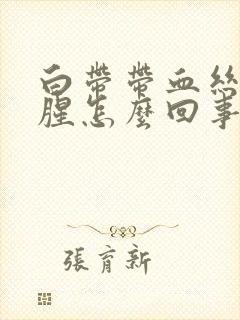 白帶帶血絲
腥怎麼回事
張育新